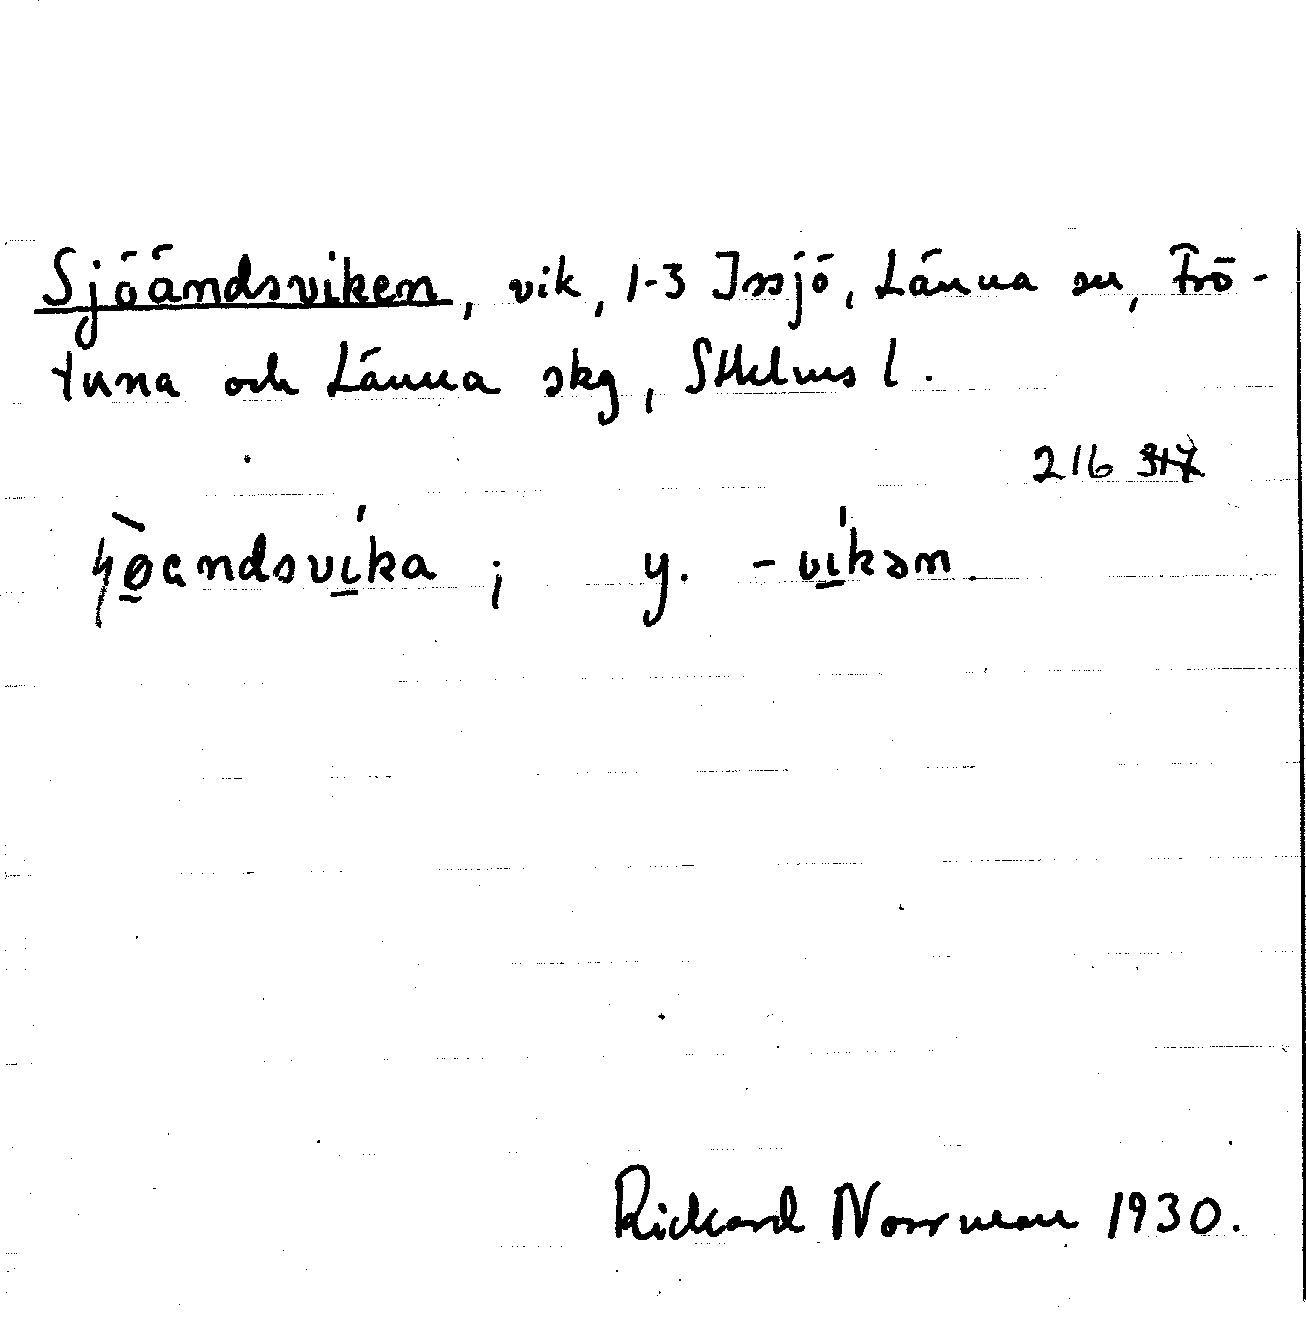 Sjöändsviken, vik, 1-3 Issjö, Länna sn, Frö-
tuna och Länna skg, Sthlms l.
216 317
ɧø̲̀andsvi̲̍ka ; y. -vi̲̍kən.
Rickard Norrman 1930.